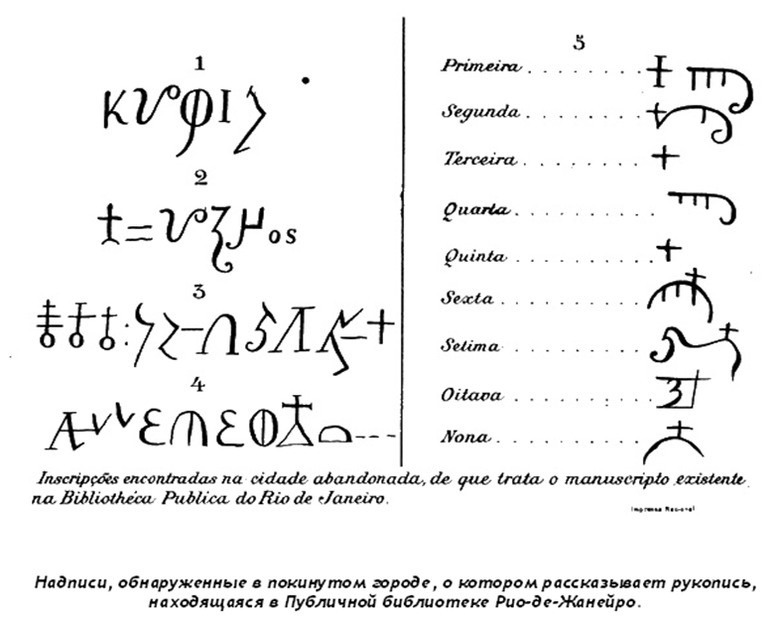 1
2
3
4
5
Primeira . . . . . . . .
Segunda . . . . . . . .
Terceira . . . . . . . .
Quarta . . . . . . . . . .
Quinta . . . . . . . . . .
Sexta . . . . . . . . . .
Setima . . . . . . . . .
Oitava . . . . . . . . . .
Nona . . . . . . . . . .
Inscripções encontradas na cidade abandonada, de que trata o manuscripto existente
na Bibliothéca Publica do Rio de Janeiro.
Imprensa Nacional
Надписи, обнаруженные в покинутом городе, о котором рассказывает рукопись,
находящаяся в Публичной библиотеке Рио-де-Жанейро.